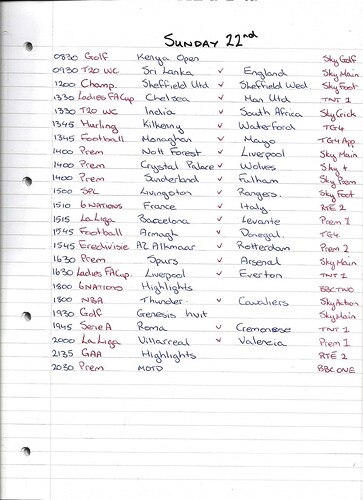 SUNDAY 22nd
0830 Golf Kenya Open Sky Golf
0930 T20 WC Sri Lanka v England Sky Main
1200 Champ. Sheffield Utd v Sheffield Wed. Sky Foot
1330 Ladies FA Cup Chelsea v Man Utd TNT 1
1330 T20 WC India v South Africa Sky Crick
1345 Hurling Kilkenny v Waterford TG4
1345 Football Monaghan v Mayo TG4 App
1400 Prem Nott Forest v Liverpool Sky Main
1400 Prem Crystal Palace v Wolves Sky +
1400 Prem Sunderland v Fulham Sky Prem
1500 SPL Livingston v Rangers. Sky Foot
1510 6 NATIONS France v Italy RTE 2
1515 La Liga Barcelona v Levante Prem 1
1545 Football Armagh v Donegal. TG4.
1545 Eredivisie AZ Alkmaar v Rotterdam Prem 2
1630 Prem Spurs v Arsenal Sky Main
1630 Ladies FA Cup. Liverpool v Everton TNT 1
1800 6 NATIONS Highlights BBC TWO
1800 NBA Thunder. v Cavaliers Sky Action
1930 Golf Genesis Invit Sky Main
1945 Serie A Roma v Cremonese TNT 1
2000 La Liga Villarreal v Valencia Prem 1
2135 GAA Highlights RTE 2
2030 Prem MOTD BBC ONE